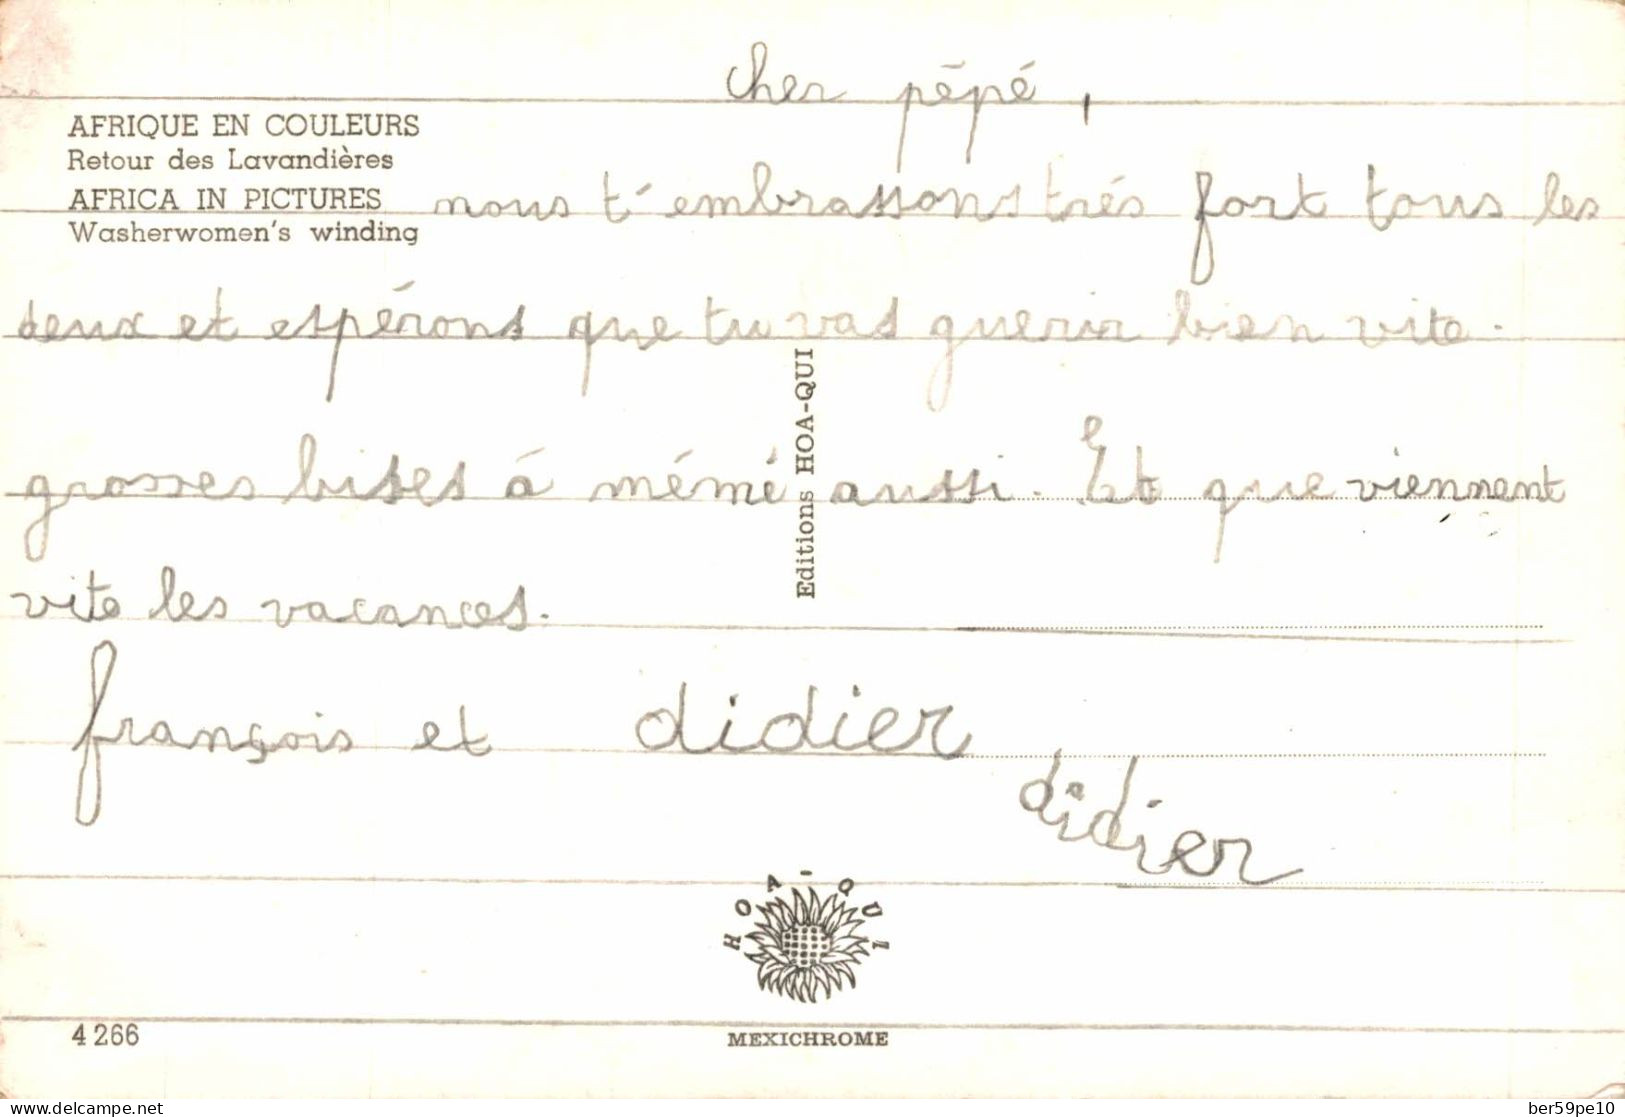 cher pépé,
AFRIQUE EN COULEURS
Retour des Lavandières
AFRICA IN PICTURES
Washerwomen's winding
nous t'embrassons trés fort tous les
deux et espérons que tu vas guerir bien vite.
grosses bises á mémé aussi. Et que viennent
vite les vacances.
françois et didier
didier
Editions HOA-QUI
HOA-QUI
4 266
MEXICHROME
delcampe.net
ber59pe10